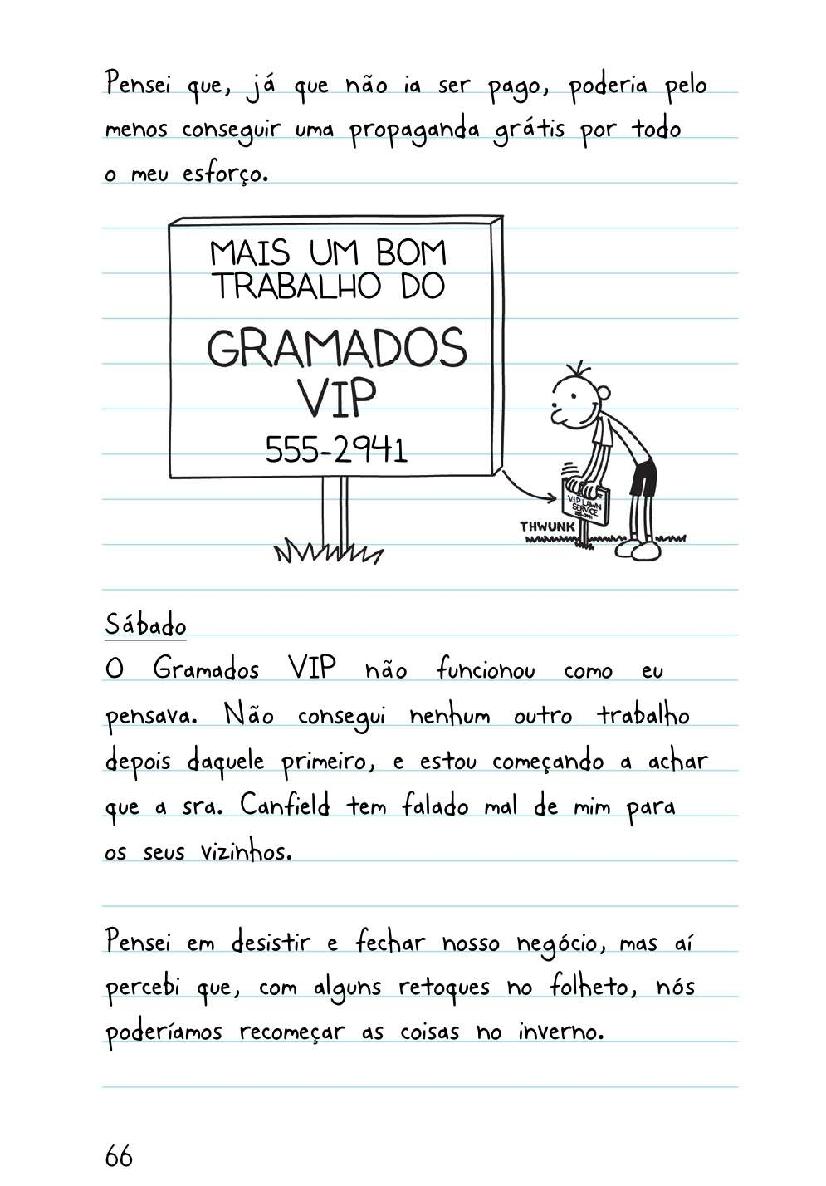 Pensei que, já que não ia ser pago, poderia pelo
menos conseguir uma propaganda grátis por todo
o meu esforço.
MAIS UM BOM
TRABALHO DO
GRAMADOS
VIP
555-2941
VIP LAWN
SERVICE
THWUNK
Sábado
O Gramados VIP não funcionou como eu
pensava. Não consegui nenhum outro trabalho
depois daquele primeiro, e estou começando a achar
que a sra. Canfield tem falado mal de mim para
os seus vizinhos.
Pensei em desistir e fechar nosso negócio, mas aí
percebi que, com alguns retoques no folheto, nós
poderíamos recomeçar as coisas no inverno.
66